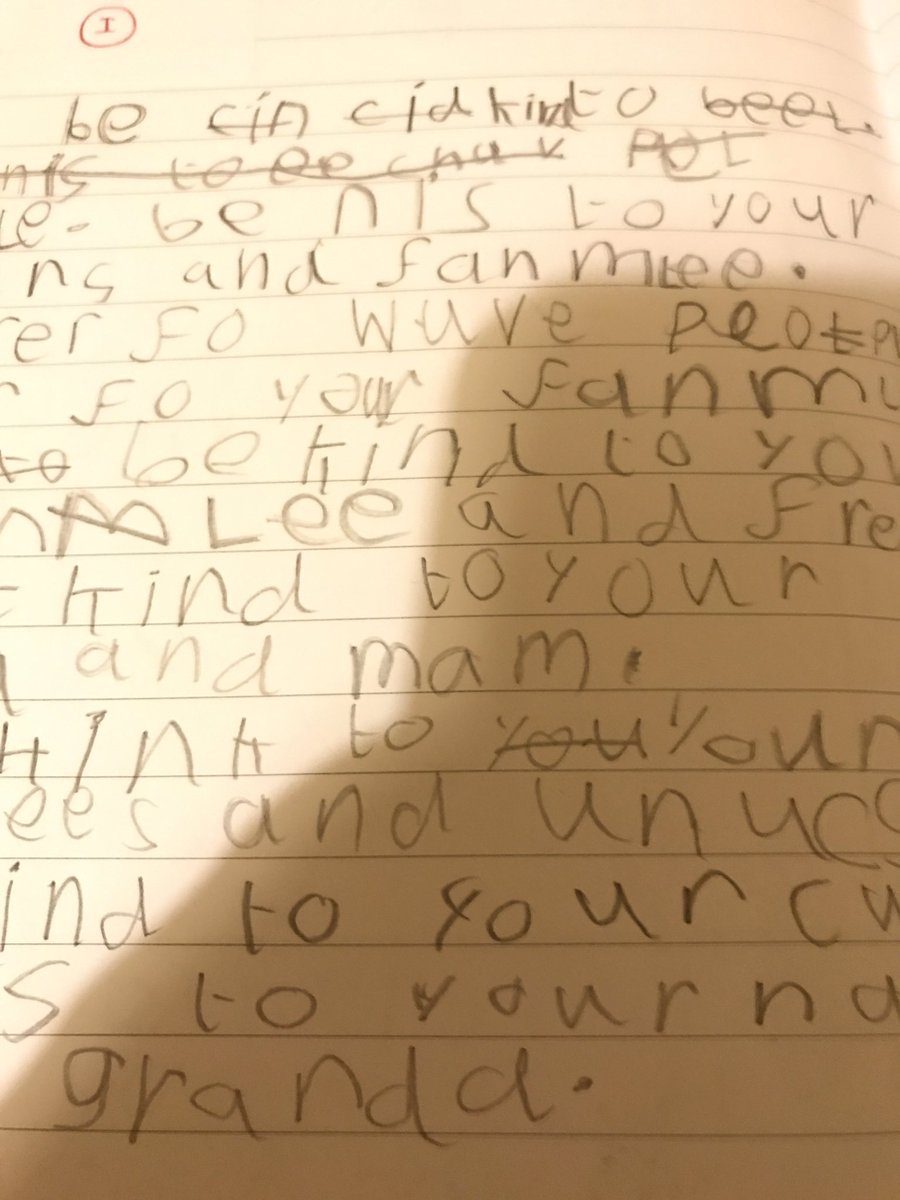 I
be cin cid kind to been.
nis to be Pot
le. be nis to your
ns and fanmlee.
er fo wuve peotp
r fo your fanmi
to be kind to you
nm Lee and fre
kind to your
and mam.
kink to you your
ees and unucc
ind to your cu
s to your na
granda.